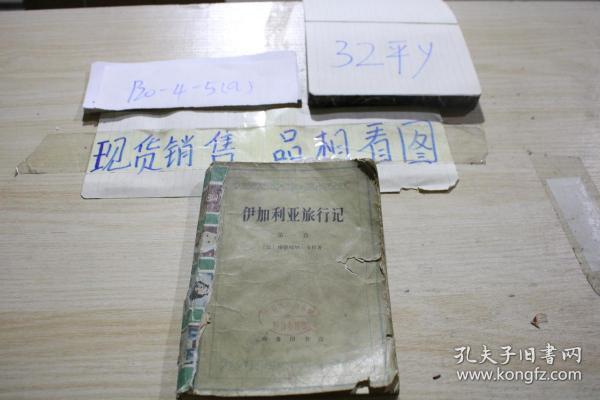 32平y
Bo-4-5(a)
现货销售 品相看图
伊加利亚旅行记
第一卷
商务印书馆
孔夫子旧书网
www.kongfz.com